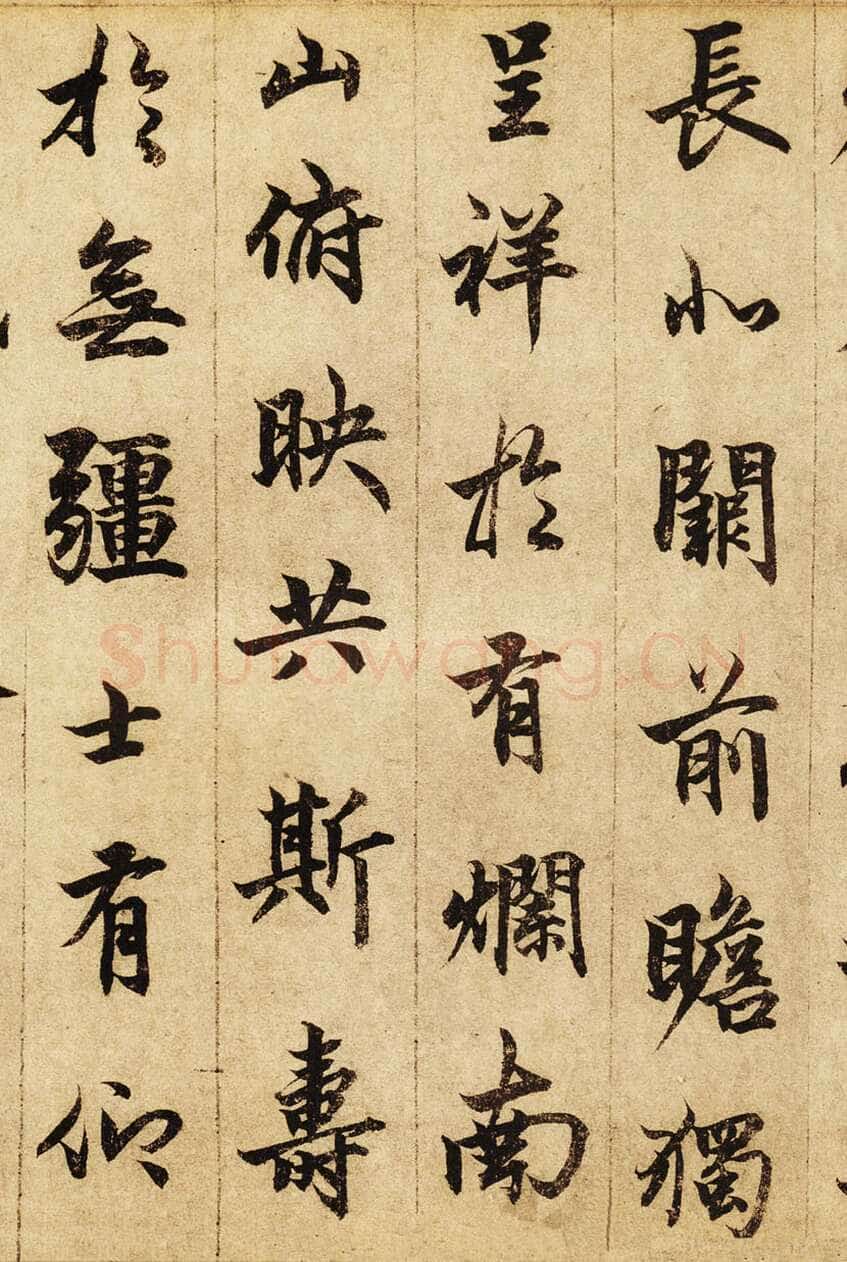 長北闕前瞻獨
呈祥於有爛南
山俯映共斯壽
於無疆士有仰
Shufawang.CN